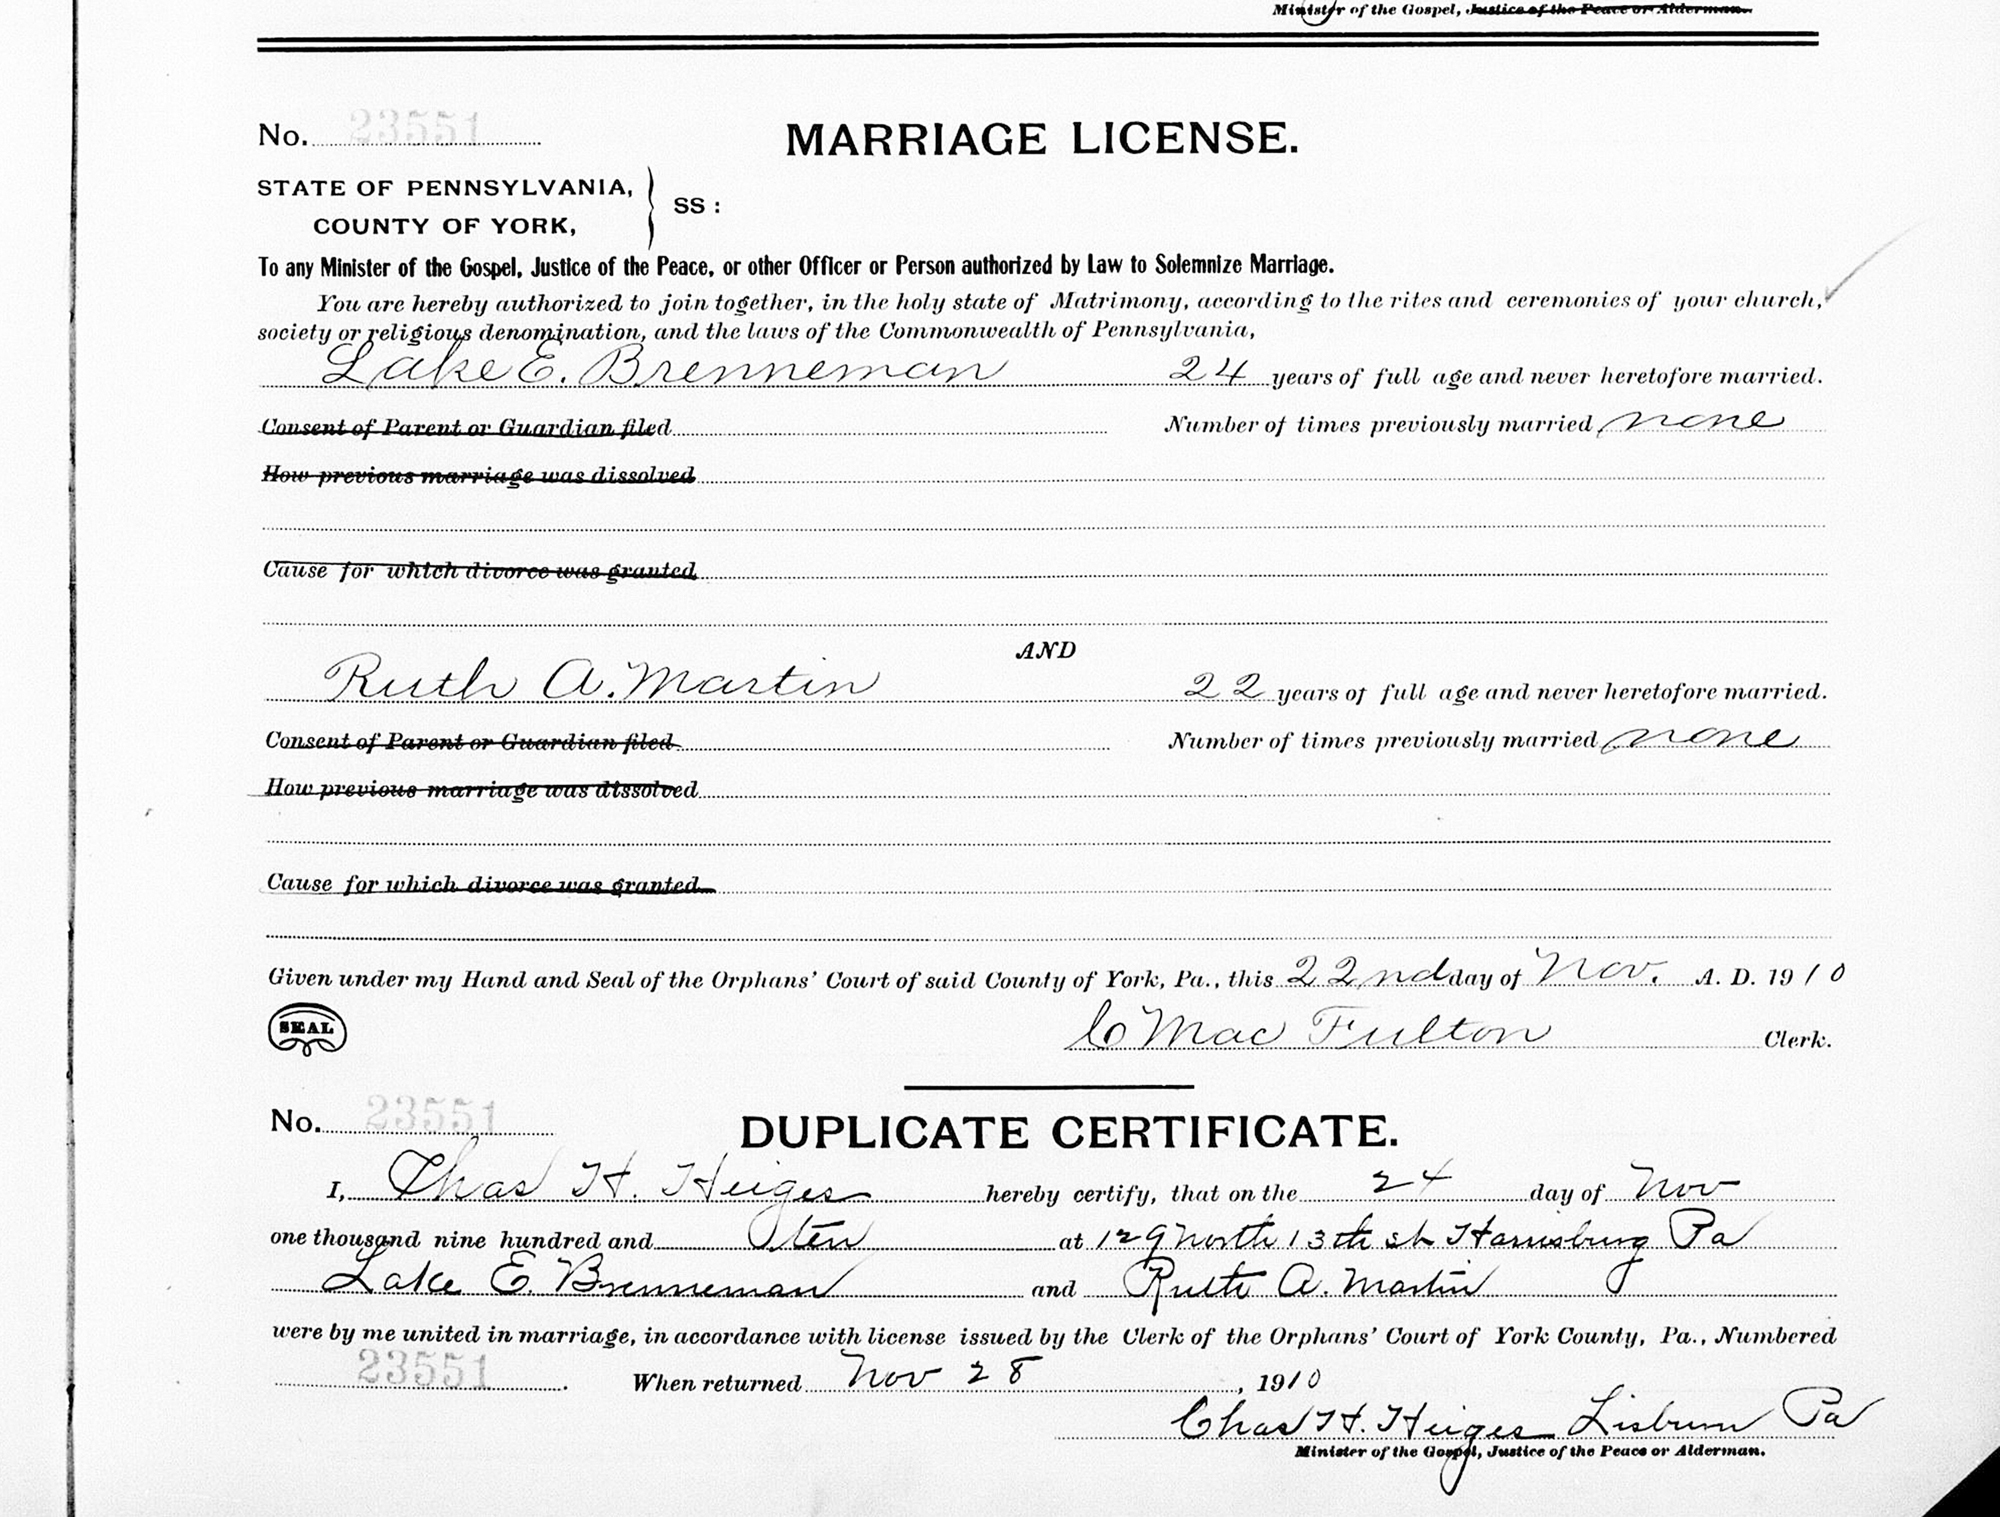 Minister of the Gospel, Justice of the Peace or Alderman.
No. 23551
MARRIAGE LICENSE.
STATE OF PENNSYLVANIA,
COUNTY OF YORK,
SS :
To any Minister of the Gospel, Justice of the Peace, or other Officer or Person authorized by Law to Solemnize Marriage.
You are hereby authorized to join together, in the holy state of Matrimony, according to the rites and ceremonies of your church,
society or religious denomination, and the laws of the Commonwealth of Pennsylvania,
Lake E. Brenneman 24 years of full age and never heretofore married.
Consent of Parent or Guardian filed Number of times previously married none
How previous marriage was dissolved
Cause for which divorce was granted
AND
Ruth A. Martin 22 years of full age and never heretofore married.
Consent of Parent or Guardian filed Number of times previously married none
How previous marriage was dissolved
Cause for which divorce was granted
Given under my Hand and Seal of the Orphans' Court of said County of York, Pa., this 22nd day of Nov. A. D. 1910
SEAL
C Mac Fulton Clerk.
No. 23551
DUPLICATE CERTIFICATE.
I, Chas H. Heiges hereby certify, that on the 24 day of Nov
one thousand nine hundred and ten at 129 North 13th st Harrisburg Pa
Lake E. Brenneman and Ruth A. Martin
were by me united in marriage, in accordance with license issued by the Clerk of the Orphans' Court of York County, Pa., Numbered
23551. When returned Nov 28, 1910
Chas H. Heiges Lisburn Pa
Minister of the Gospel, Justice of the Peace or Alderman.